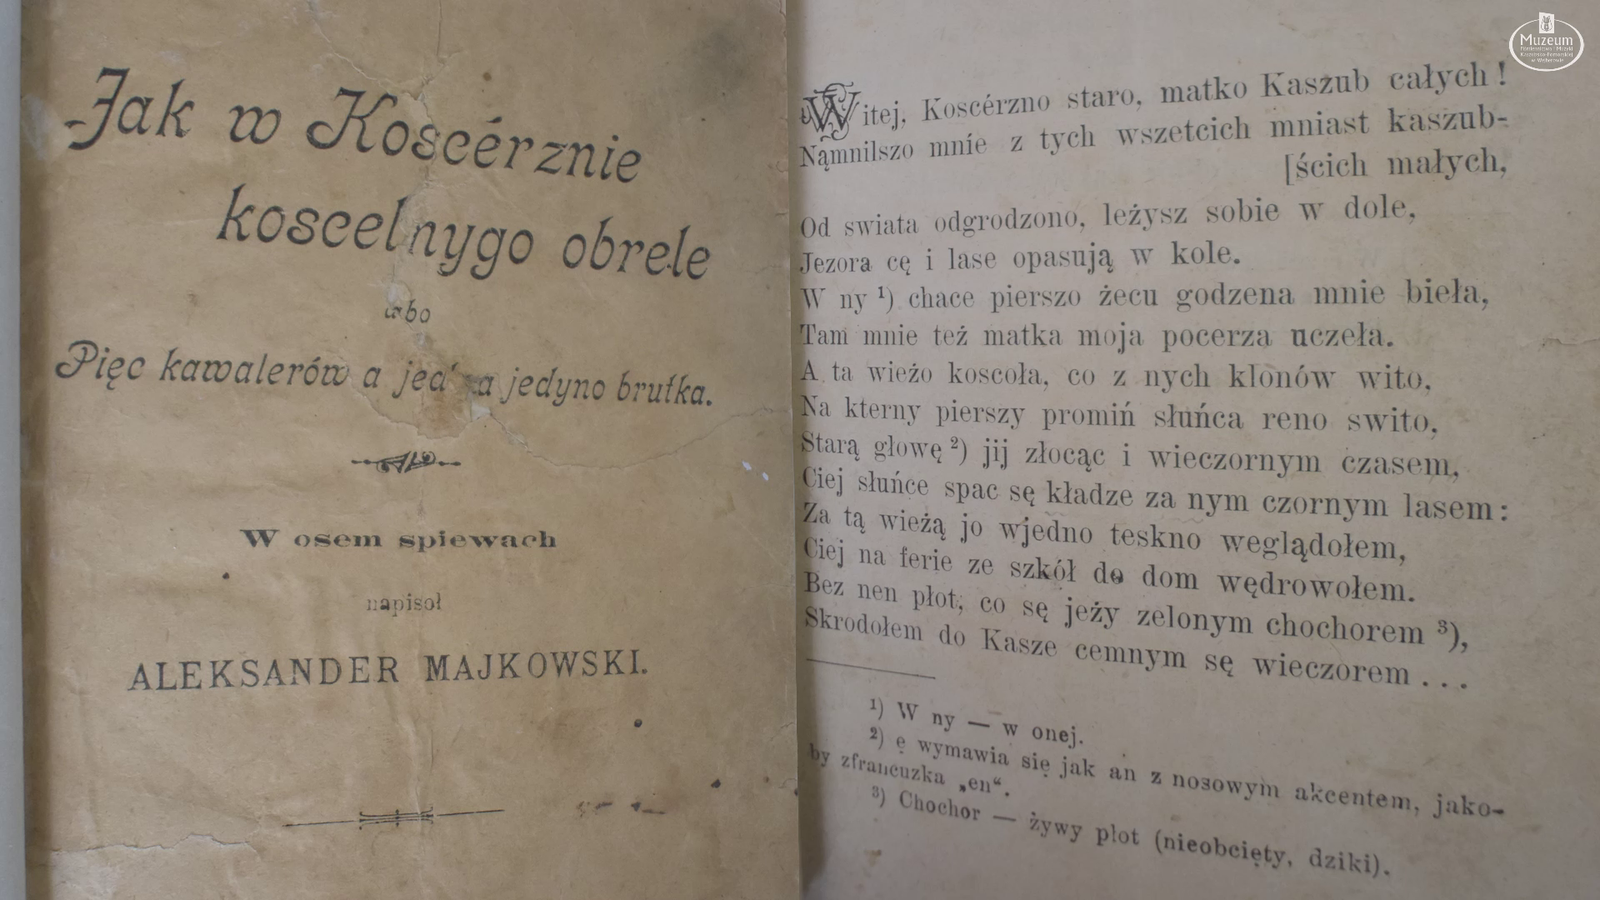 Jak w Koscérznie
koscelnygo obrele
abo
Pięc kawalerów a jedyno brutka.
W osem spiewach
napisoł
ALEKSANDER MAJKOWSKI.
Witej, Koscérzno staro, matko Kaszub całych!
Nąmnilszo mnie z tych wszetcich mniast kaszub-
[ścich małych,
Od swiata odgrodzono, leżysz sobie w dole,
Jezora cę i lase opasują w kole.
W ny ¹) chace pierszo żecu godzena mnie bieła,
Tam mnie też matka moja pocerza uczeła.
A ta wieżo koscoła, co z nych klonów wito,
Na kterny pierszy promiń słuńca reno swito,
Starą głowę ²) jij złocąc i wieczornym czasem,
Ciej słuńce spac sę kładze za nym czornym lasem:
Za tą wieżą jo wjedno teskno weglądołem,
Ciej na ferie ze szkół do dom wędrowołem.
Bez nen płot, co sę jeży zelonym chochorem ³),
Skrodołem do Kasze cemnym sę wieczorem . . .
¹) W ny — w onej.
²) ę wymawia się jak an z nosowym akcentem, jako-
by zfrancuzka „en“.
³) Chochor — żywy płot (nieobcięty, dziki).
Muzeum